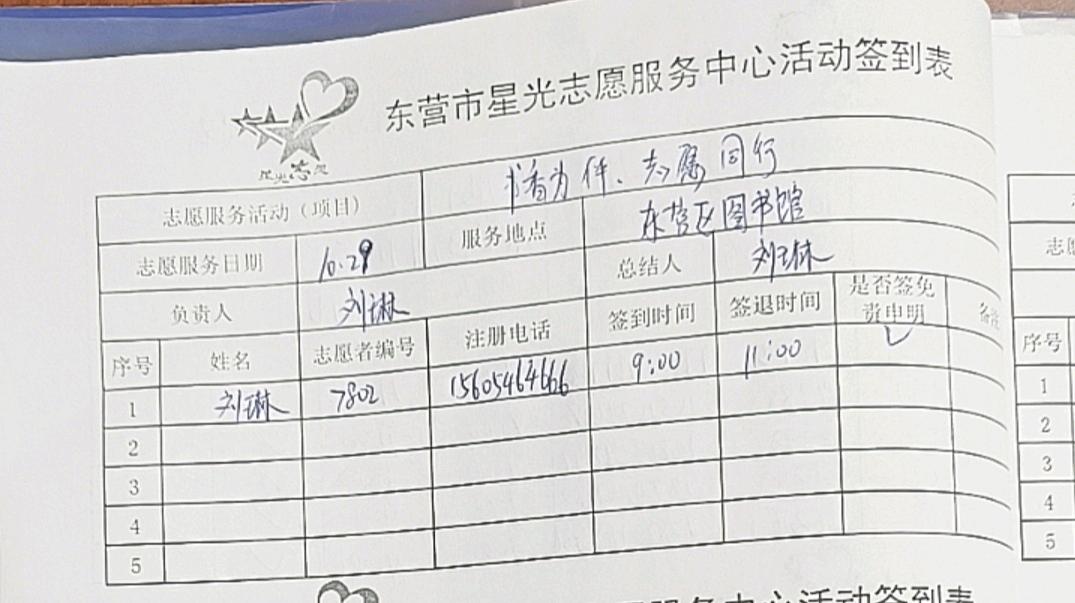 东营市星光志愿服务中心活动签到表
星光志愿
志愿服务活动(项目) 书香为伴、志愿同行
志愿服务日期 10.29 服务地点 东营区图书馆
负责人 刘琳 总结人 刘琳
序号 姓名 志愿者编号 注册电话 签到时间 签退时间 是否签免责申明 备注
1 刘琳 7802 15605464666 9:00 11:00 ✓
2
3
4
5
志愿
序号
1
2
3
4
5
服务中心活动签到表